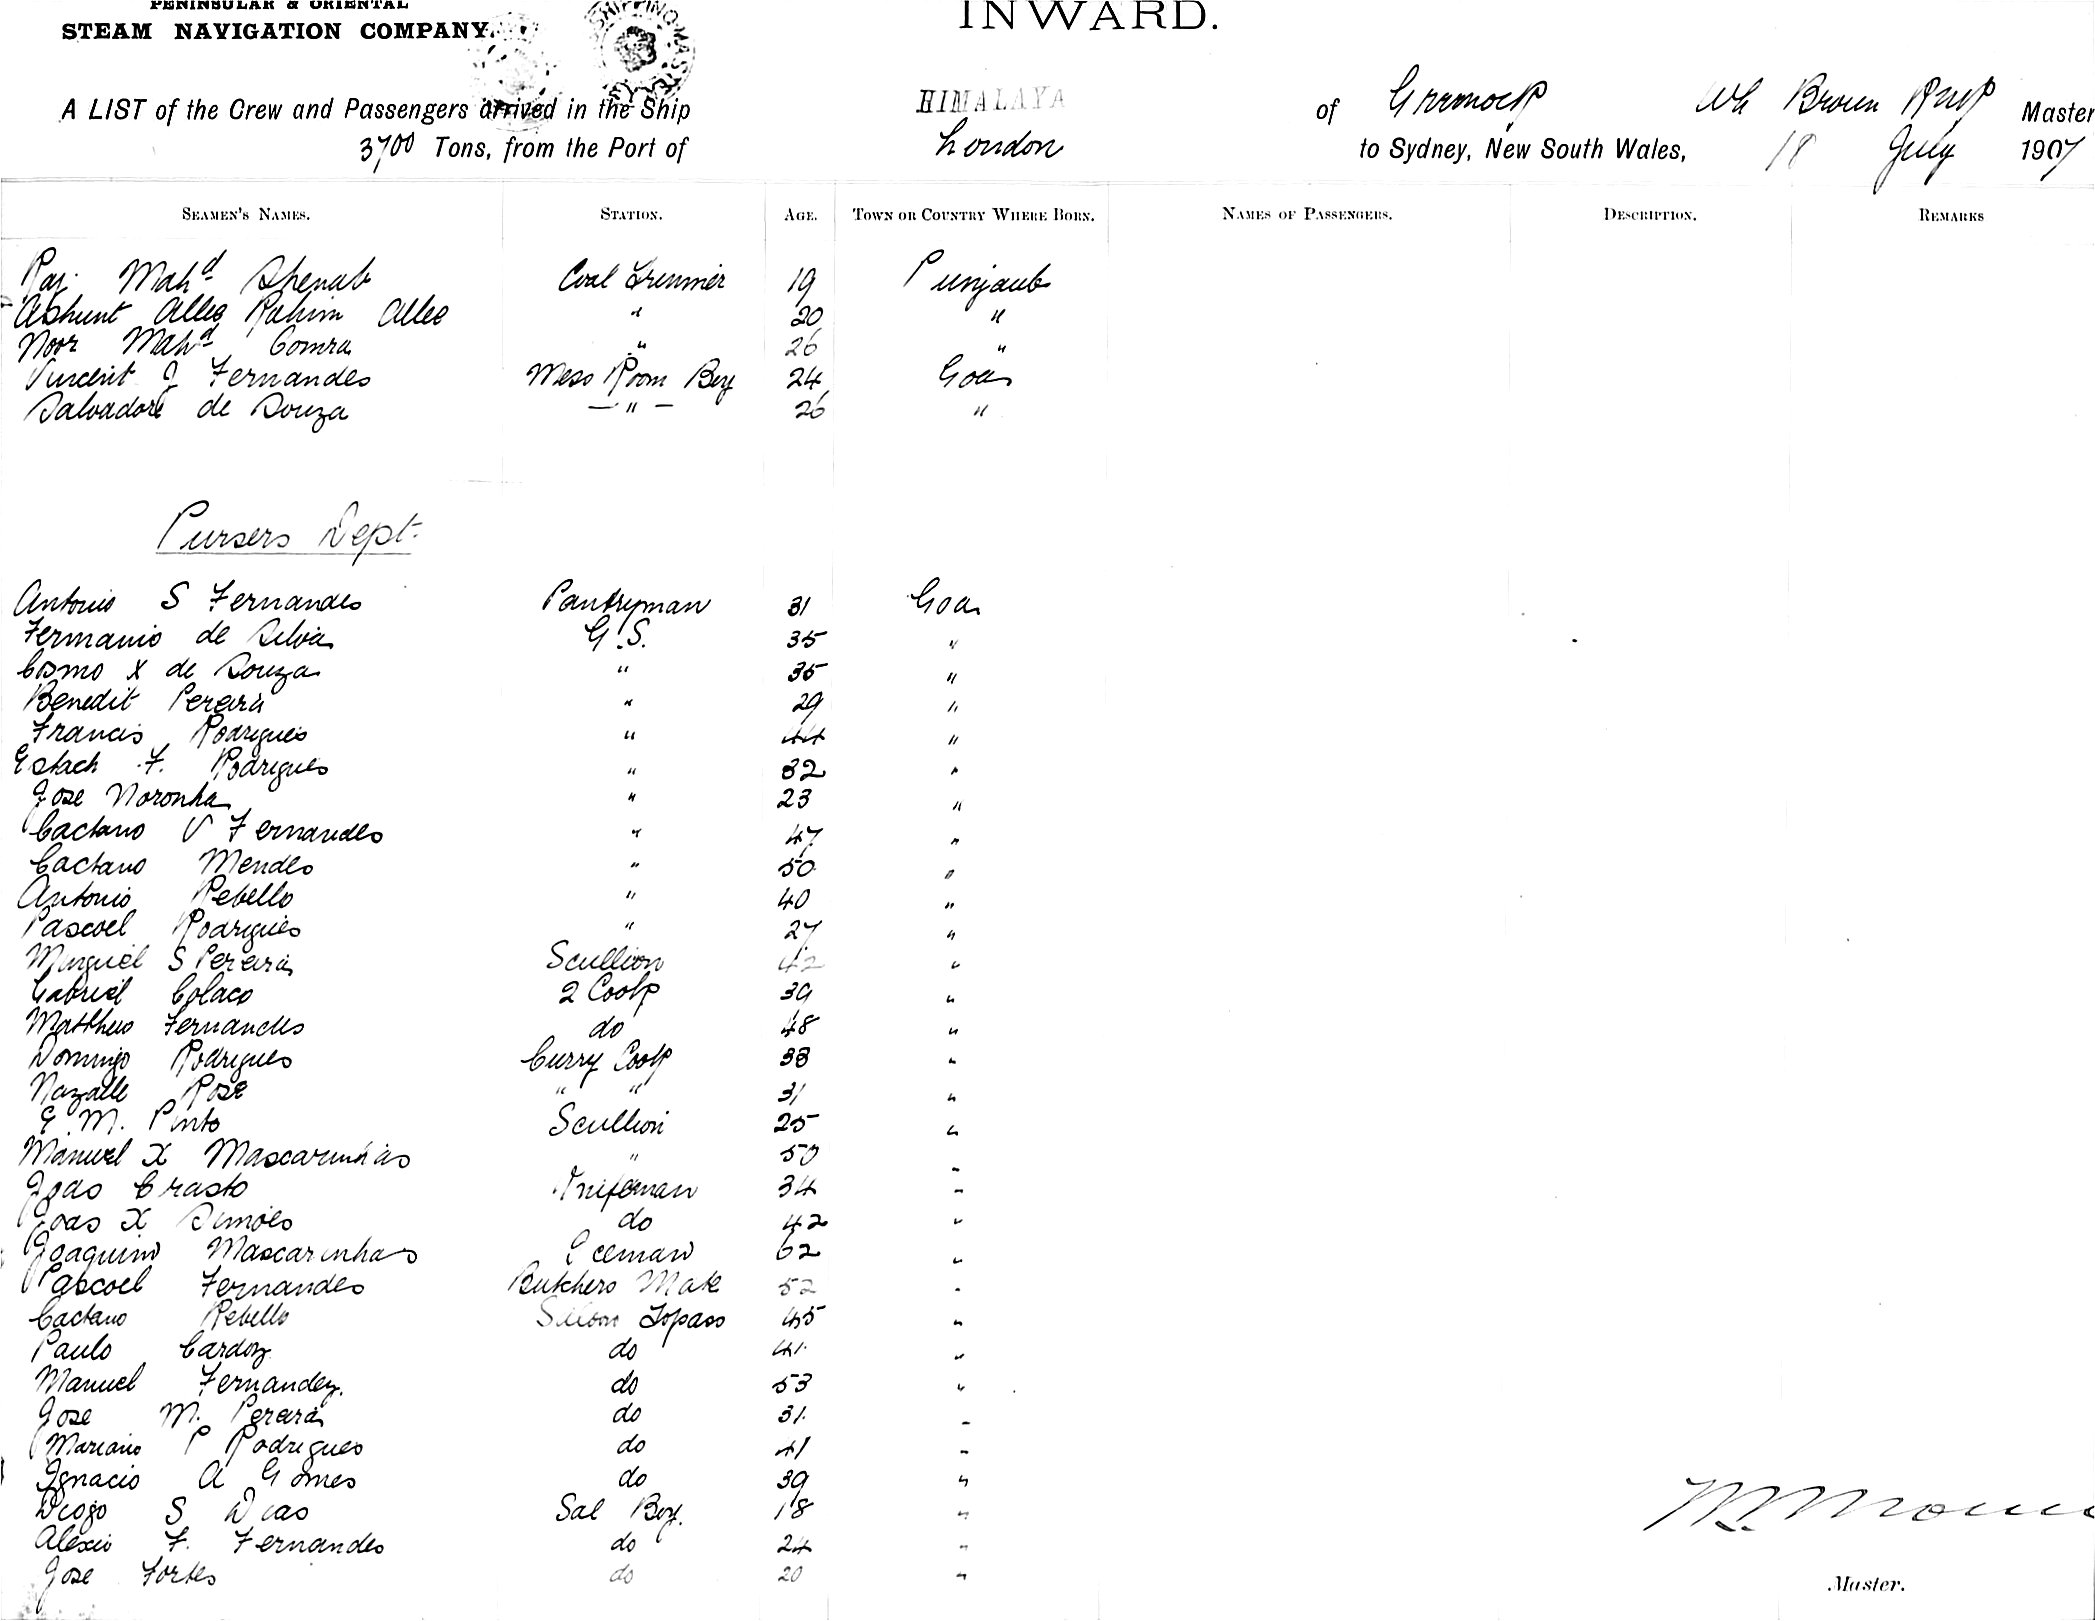 PENINSULAR & ORIENTAL
STEAM NAVIGATION COMPANY.
INWARD.
SHIPPING MASTER
A LIST of the Crew and Passengers arrived in the Ship HIMALAYA of Greenock Wh Brown RNR Master
3700 Tons, from the Port of London to Sydney, New South Wales, 18 July 1907
SEAMEN'S NAMES. STATION. AGE. TOWN OR COUNTRY WHERE BORN. NAMES OF PASSENGERS. DESCRIPTION. REMARKS
Raj Mahd Shenab Coal Trimmer 19 Punjaub
Allee Rahim Allee " 20 "
Noor Mahd Comra " 26 "
Vincent J Fernandes Mess Room Boy 24 Goa
Salvadore de Souza — " — 26 "
Pursers Dept.
Antonio S Fernandes Pantryman 31 Goa
Fermanio de Silva G.S. 35 "
Cosmo X de Souza " 35 "
Benedit Pereira " 29 "
Francis Rodrigues " 44 "
Estach F. Rodrigues " 32 "
Jose Noronha " 23 "
Caetano V Fernandes " 47 "
Caetano Mendes " 50 "
Antonio Rebello " 40 "
Pascoel Rodrigues " 27 "
Minguel S Pereira Scullion 42 "
Gabriel Colaco 2 Cook 39 "
Matthew Fernandes do 48 "
Domingo Rodrigues Curry Cook 38 "
Nazalle Rose " " 31 "
E. M. Pinto Scullion 25 "
Manuel X Mascarinhas " 50 "
Joao Crasto Knifeman 34 "
Joao X Simoes do 42 "
Joaquim Mascarinhas Iceman 62 "
Pascoel Fernandes Butchers Mate 52 "
Caetano Rebello Saloon Topass 45 "
Paulo Cardoz do 41 "
Manuel Fernandez. do 53 "
Jose M. Perara do 31 "
Mariano P Rodrigues do 41 "
Ignacio A Gomes do 39 "
Diogo S Dias Sal Boy. 18 "
Alexio F. Fernandes do 24 "
Jose Fortes do 20 "
Master.